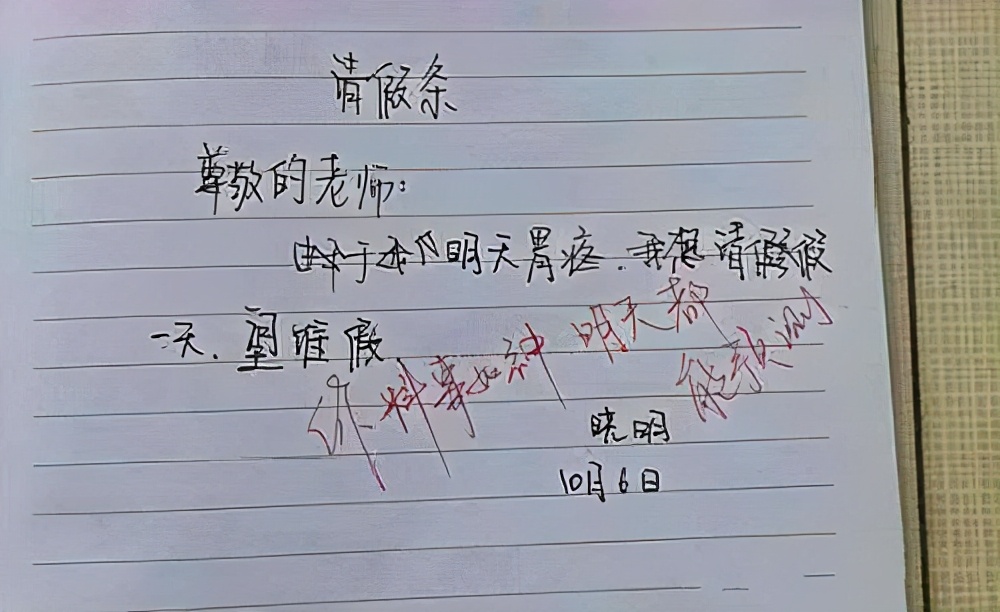 请假条
尊敬的老师：
由于本人明天胃疼．我想请假假
一天．望准假．
你料事如神 明天都
能预测
晓明
10月6日